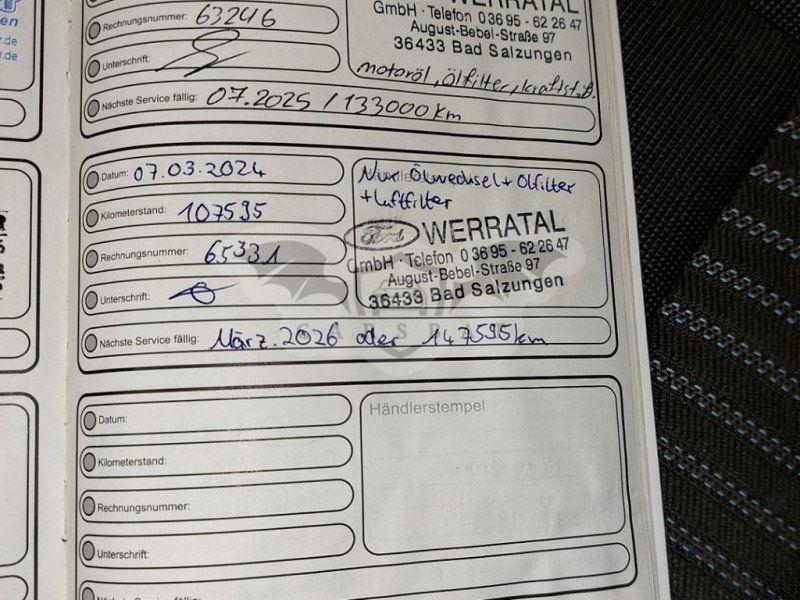 en
r.de
r.de
Rechnungsnummer: 63246
Unterschrift:
Nächste Service fällig: 07.2025 / 133000 km
WERRATAL
GmbH · Telefon 0 36 95 - 62 26 47
August-Bebel-Straße 97
36433 Bad Salzungen
motoröl, Ölfilter, kraftst.f.
Datum: 07.03.2024
Kilometerstand: 107595
Rechnungsnummer: 65331
Unterschrift:
Nur Ölwechsel + Ölfilter
+ Luftfilter
Ford WERRATAL
GmbH · Telefon 0 36 95 - 62 26 47
August-Bebel-Straße 97
36433 Bad Salzungen
Nächste Service fällig: März.2026 oder 147595km
Datum:
Kilometerstand:
Rechnungsnummer:
Unterschrift:
Händlerstempel
Nächste Service fällig: